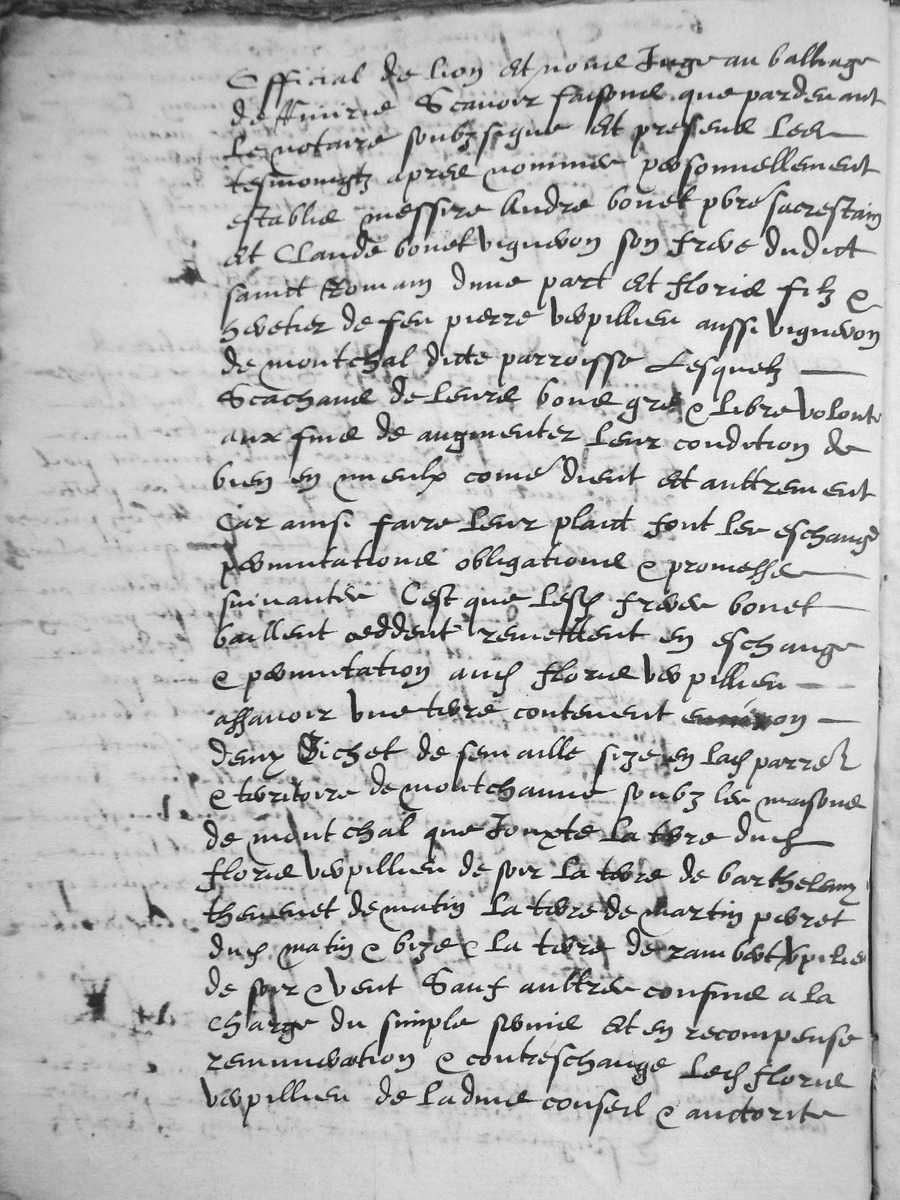 Official de lion et nous Juge au balliage
de Scavoir faisons que pardevant
Le notaire soubzsigne et presens les
tesmoingtz apres nommes personnellement
establis messire Andre bonet pbre sacrestain
et Claude bonet vigneron son frere dudict
sainct Romain dune part et floris filz &
heretier de feu pierre verpillieu aussi vigneron
de montchal dicte parroisse Lesquelz
Scachans de leurs bons gres & libre volonte
aux fins de augmenter leur condition de
bien en mieulx come dient et aultrement
Car ainsi faire leur plaict font les eschanges
permutations obligations & promesses
suivantes C'est que lesd freres bonet
baillent ceddent remettent en eschange
& permutation aud floris verpillieu
assavoir une terre contenent environ
deux Bichet de semaille size en lad parre
& territoire de montchanus soubz les maisons
de montchal que Jouxte la terre dud
floris verpillieu de soir la terre de barthelemy
thevenet de matin la terre de martin perret
dud matin & bize & la terre de rambert verpilieu
de soir & vent Sauf aultres confins a la
charge du simple servis et en recompense
remuneration & contreschange led floris
verpillieu de ladvis conseil & auctorite